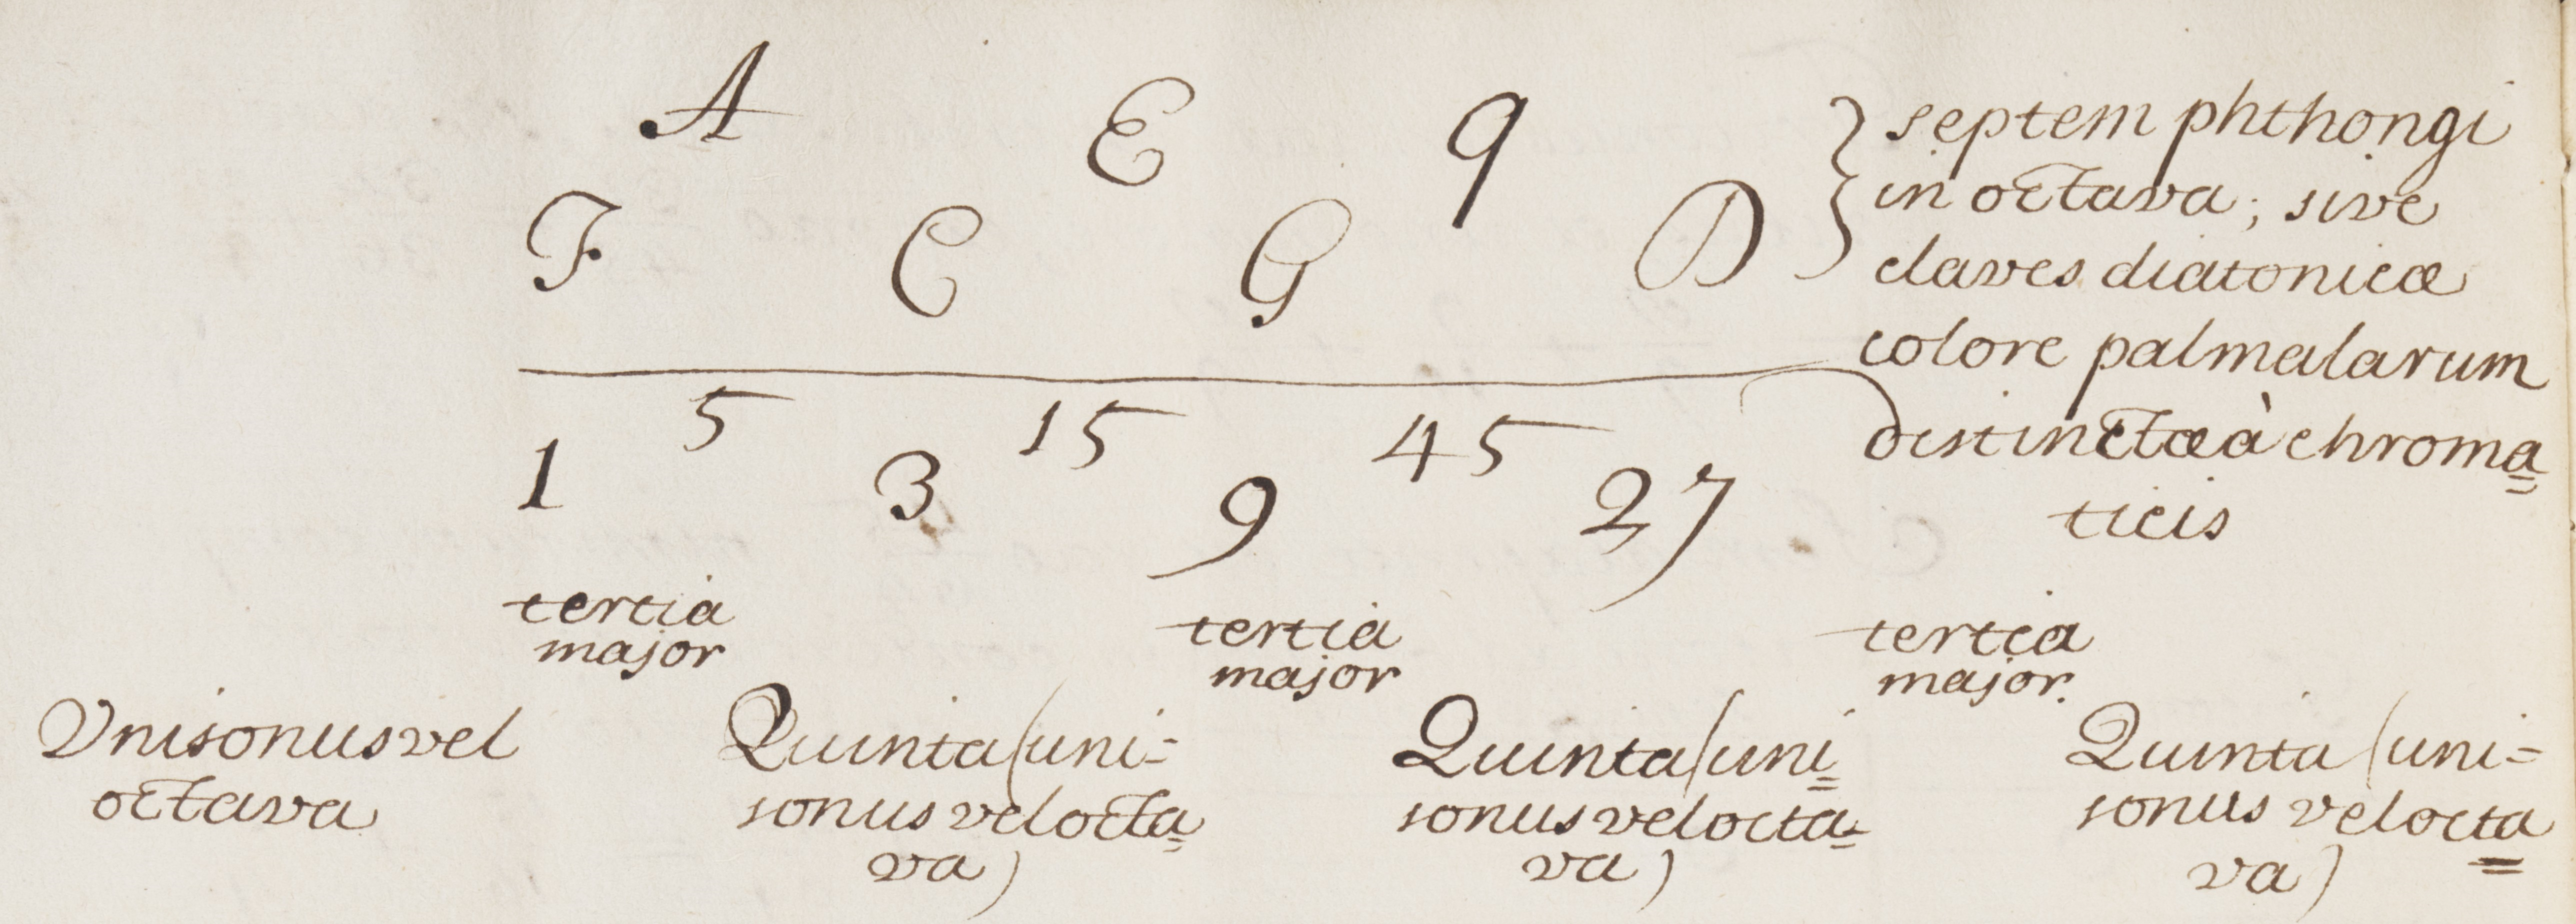 A E q
F C G D
} septem phthongi
in octava; sive
claves diatonicæ
colore palmularum
distinctæ à chroma=
ticis
5 15 45
1 3 9 27
tertia
major
tertia
major
tertia
major.
Vnisonus vel
octava
Quinta (uni=
sonus vel octa=
va)
Quinta (uni=
sonus vel octa=
va)
Quinta (uni=
sonus vel octa=
va)